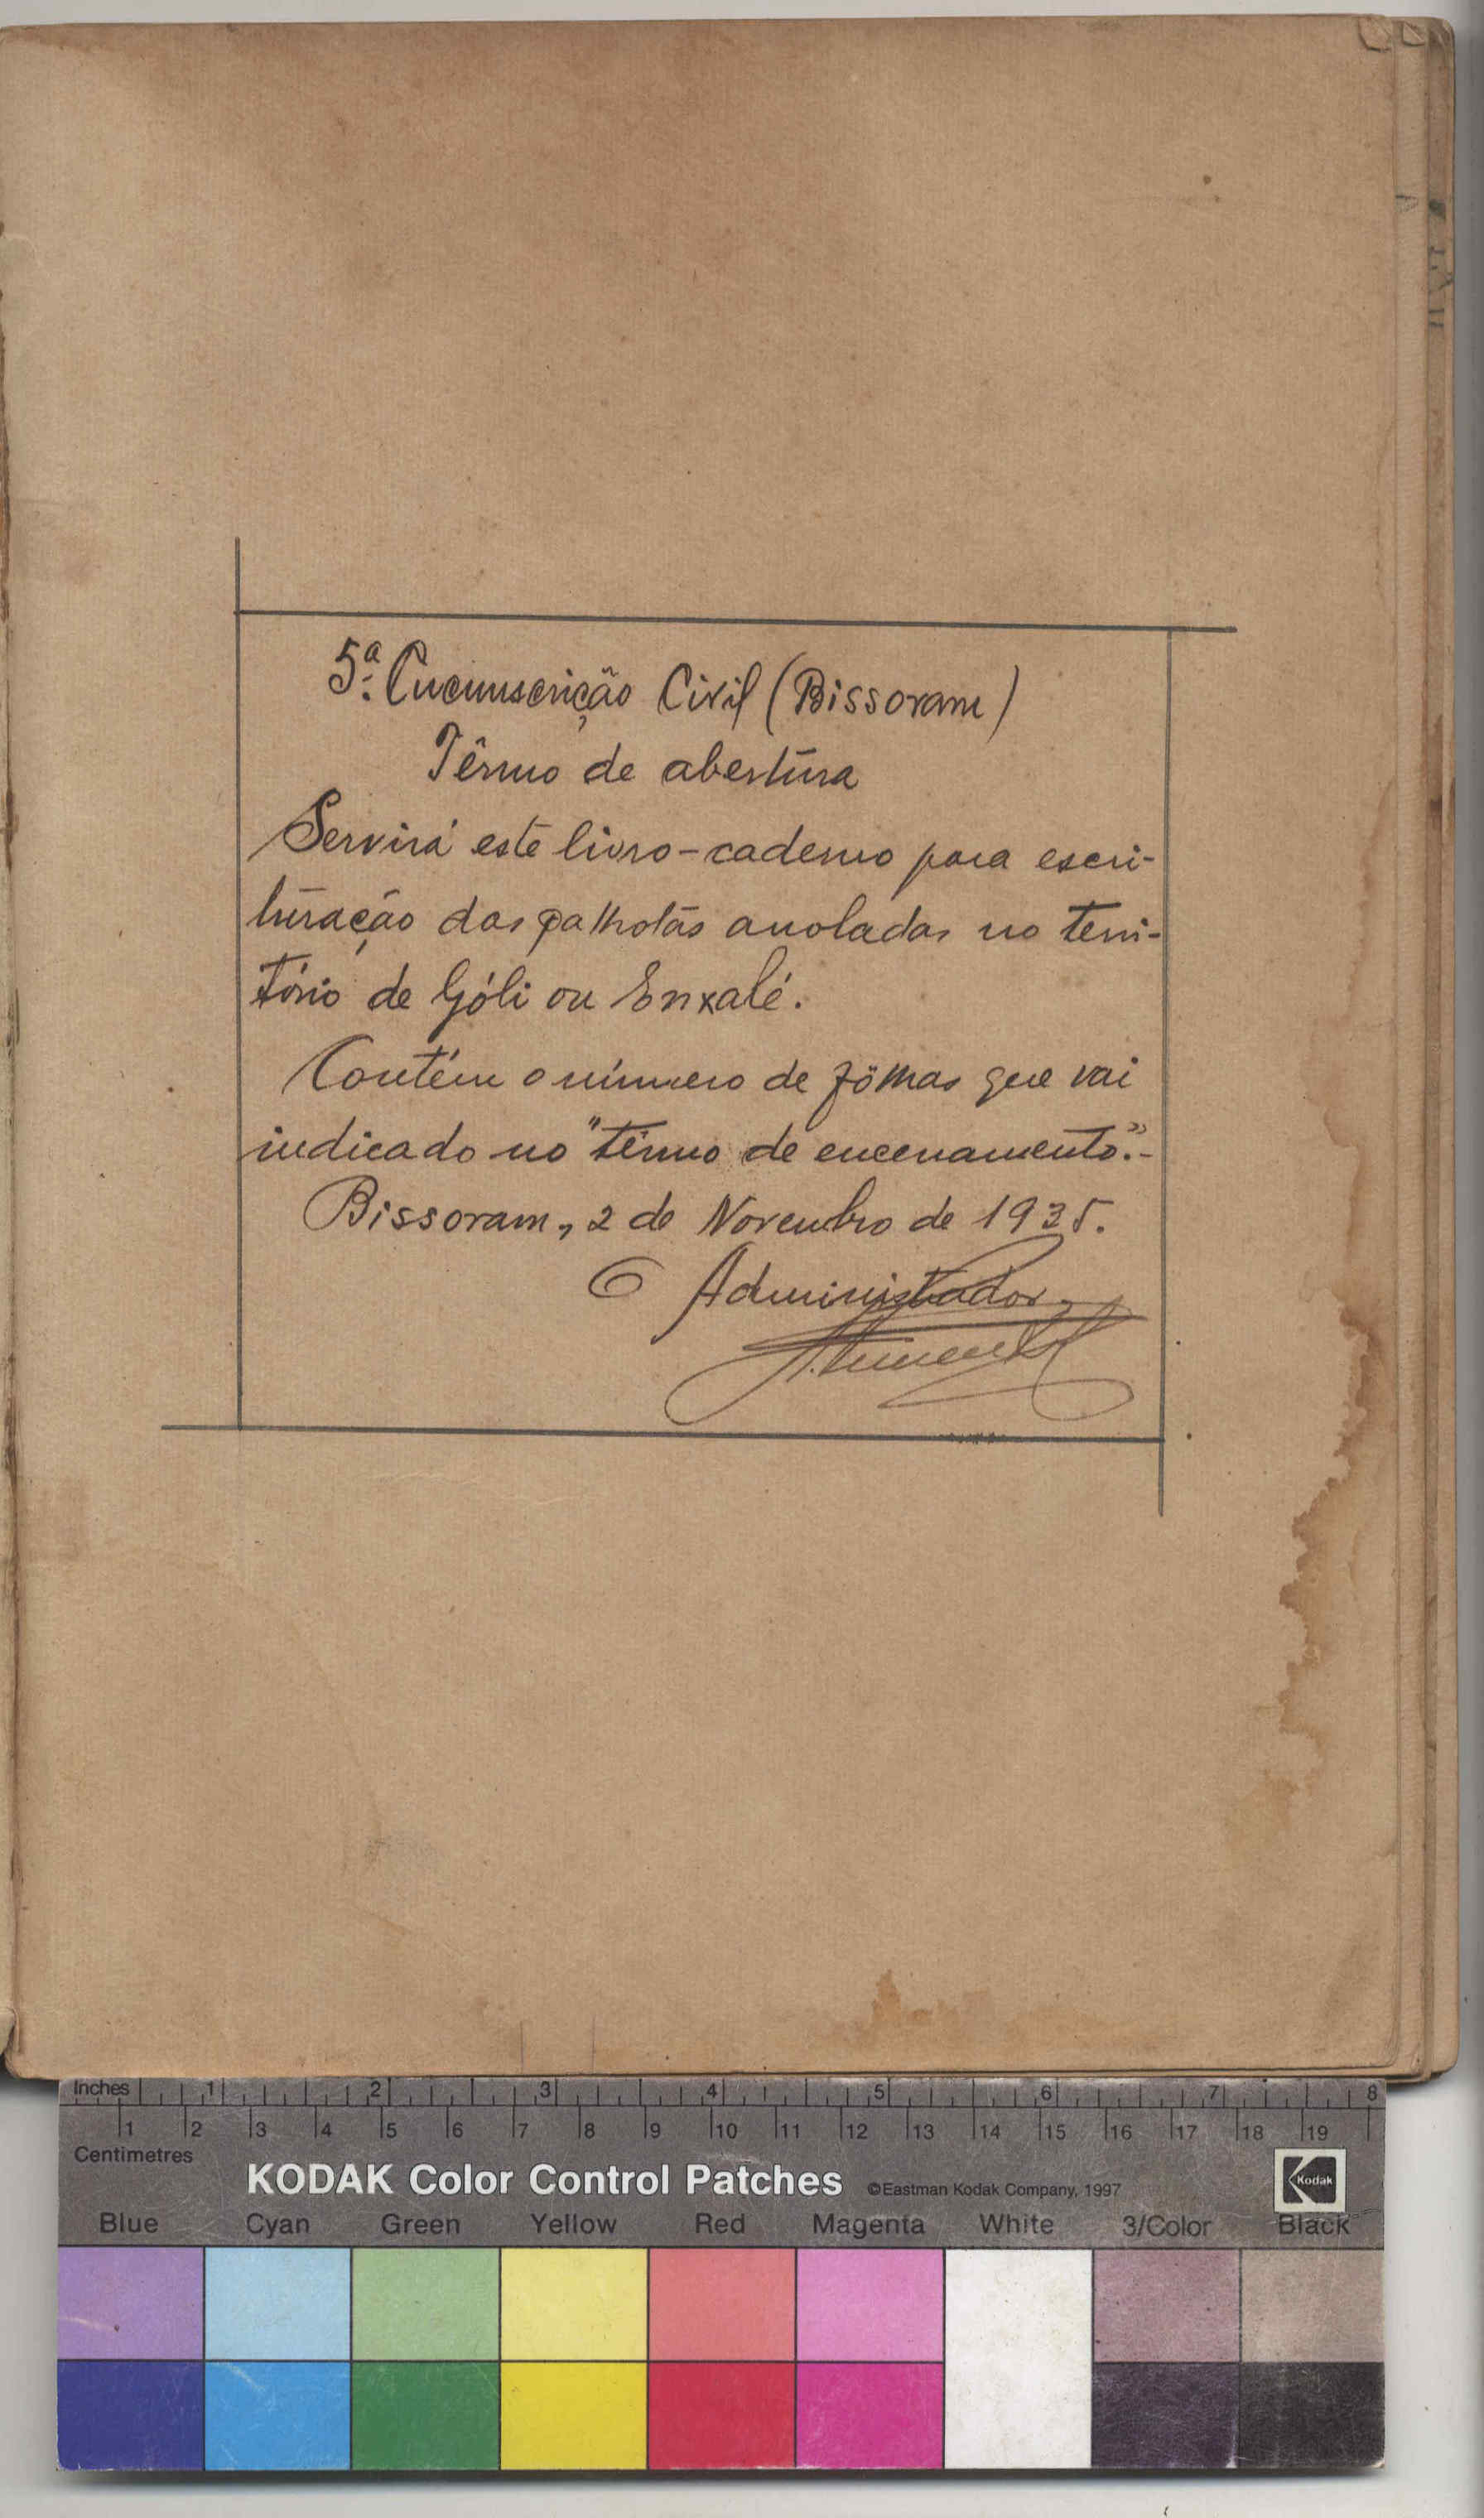 5.ª Circunscrição Civil (Bissoram)
Têrmo de abertura
Servirá este livro-caderno para escri-
turação das palhotas anoladas no terri-
tório de Góli ou Enxalé.
Contém o número de fôlhas que vai
indicado no "têrmo de encerramento".-
Bissoram, 2 de Novembro de 1935.
O Administrador,
Inches 1 2 3 4 5 6 7 8
1 2 3 4 5 6 7 8 9 10 11 12 13 14 15 16 17 18 19
Centimetres
KODAK Color Control Patches ©Eastman Kodak Company, 1997 Kodak
Blue Cyan Green Yellow Red Magenta White 3/Color Black